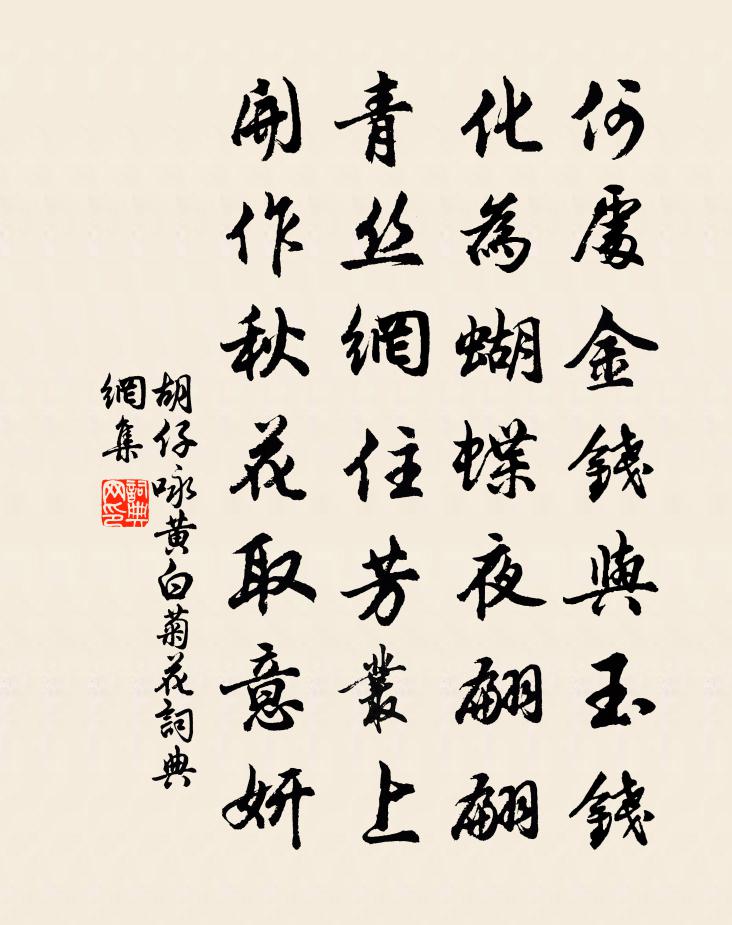 何處金錢與玉錢
化為蝴蝶夜翩翩
青丝網住芳叢上
開作秋花取意妍
胡仔咏黄白菊花詞典
網集
詞典網印